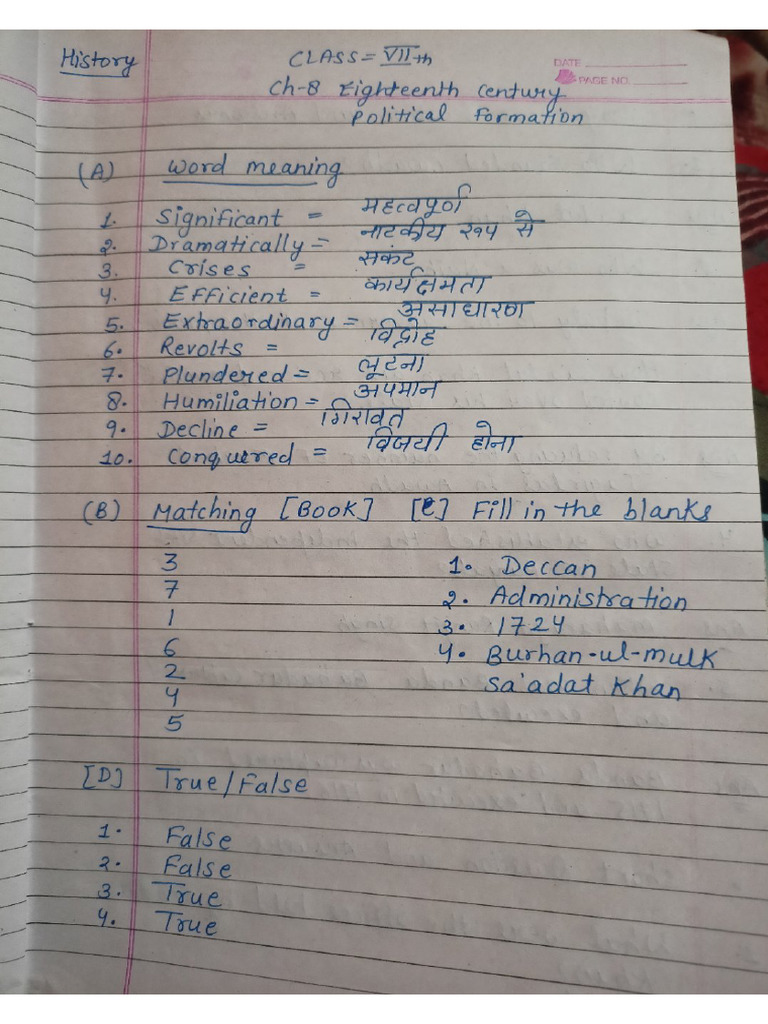 History
CLASS = VIIth
DATE
PAGE NO.
Ch-8 Eighteenth Century
Political Formation
(A) Word meaning
1. Significant = महत्वपूर्ण
2. Dramatically = नाटकीय रूप से
3. Crises = सकंट
4. Efficient = कार्यक्षमता
5. Extraordinary = असाधारण
6. Revolts = विद्रोह
7. Plundered = लूटना
8. Humiliation = अपमान
9. Decline = गिरावत
10. Conquered = विजयी होना
(B) Matching [Book] [C] Fill in the blanks
3
7
1
6
2
4
5
1. Deccan
2. Administration
3. 1724
4. Burhan-ul-mulk
Sa'adat Khan
[D] True/False
1. False
2. False
3. True
4. True